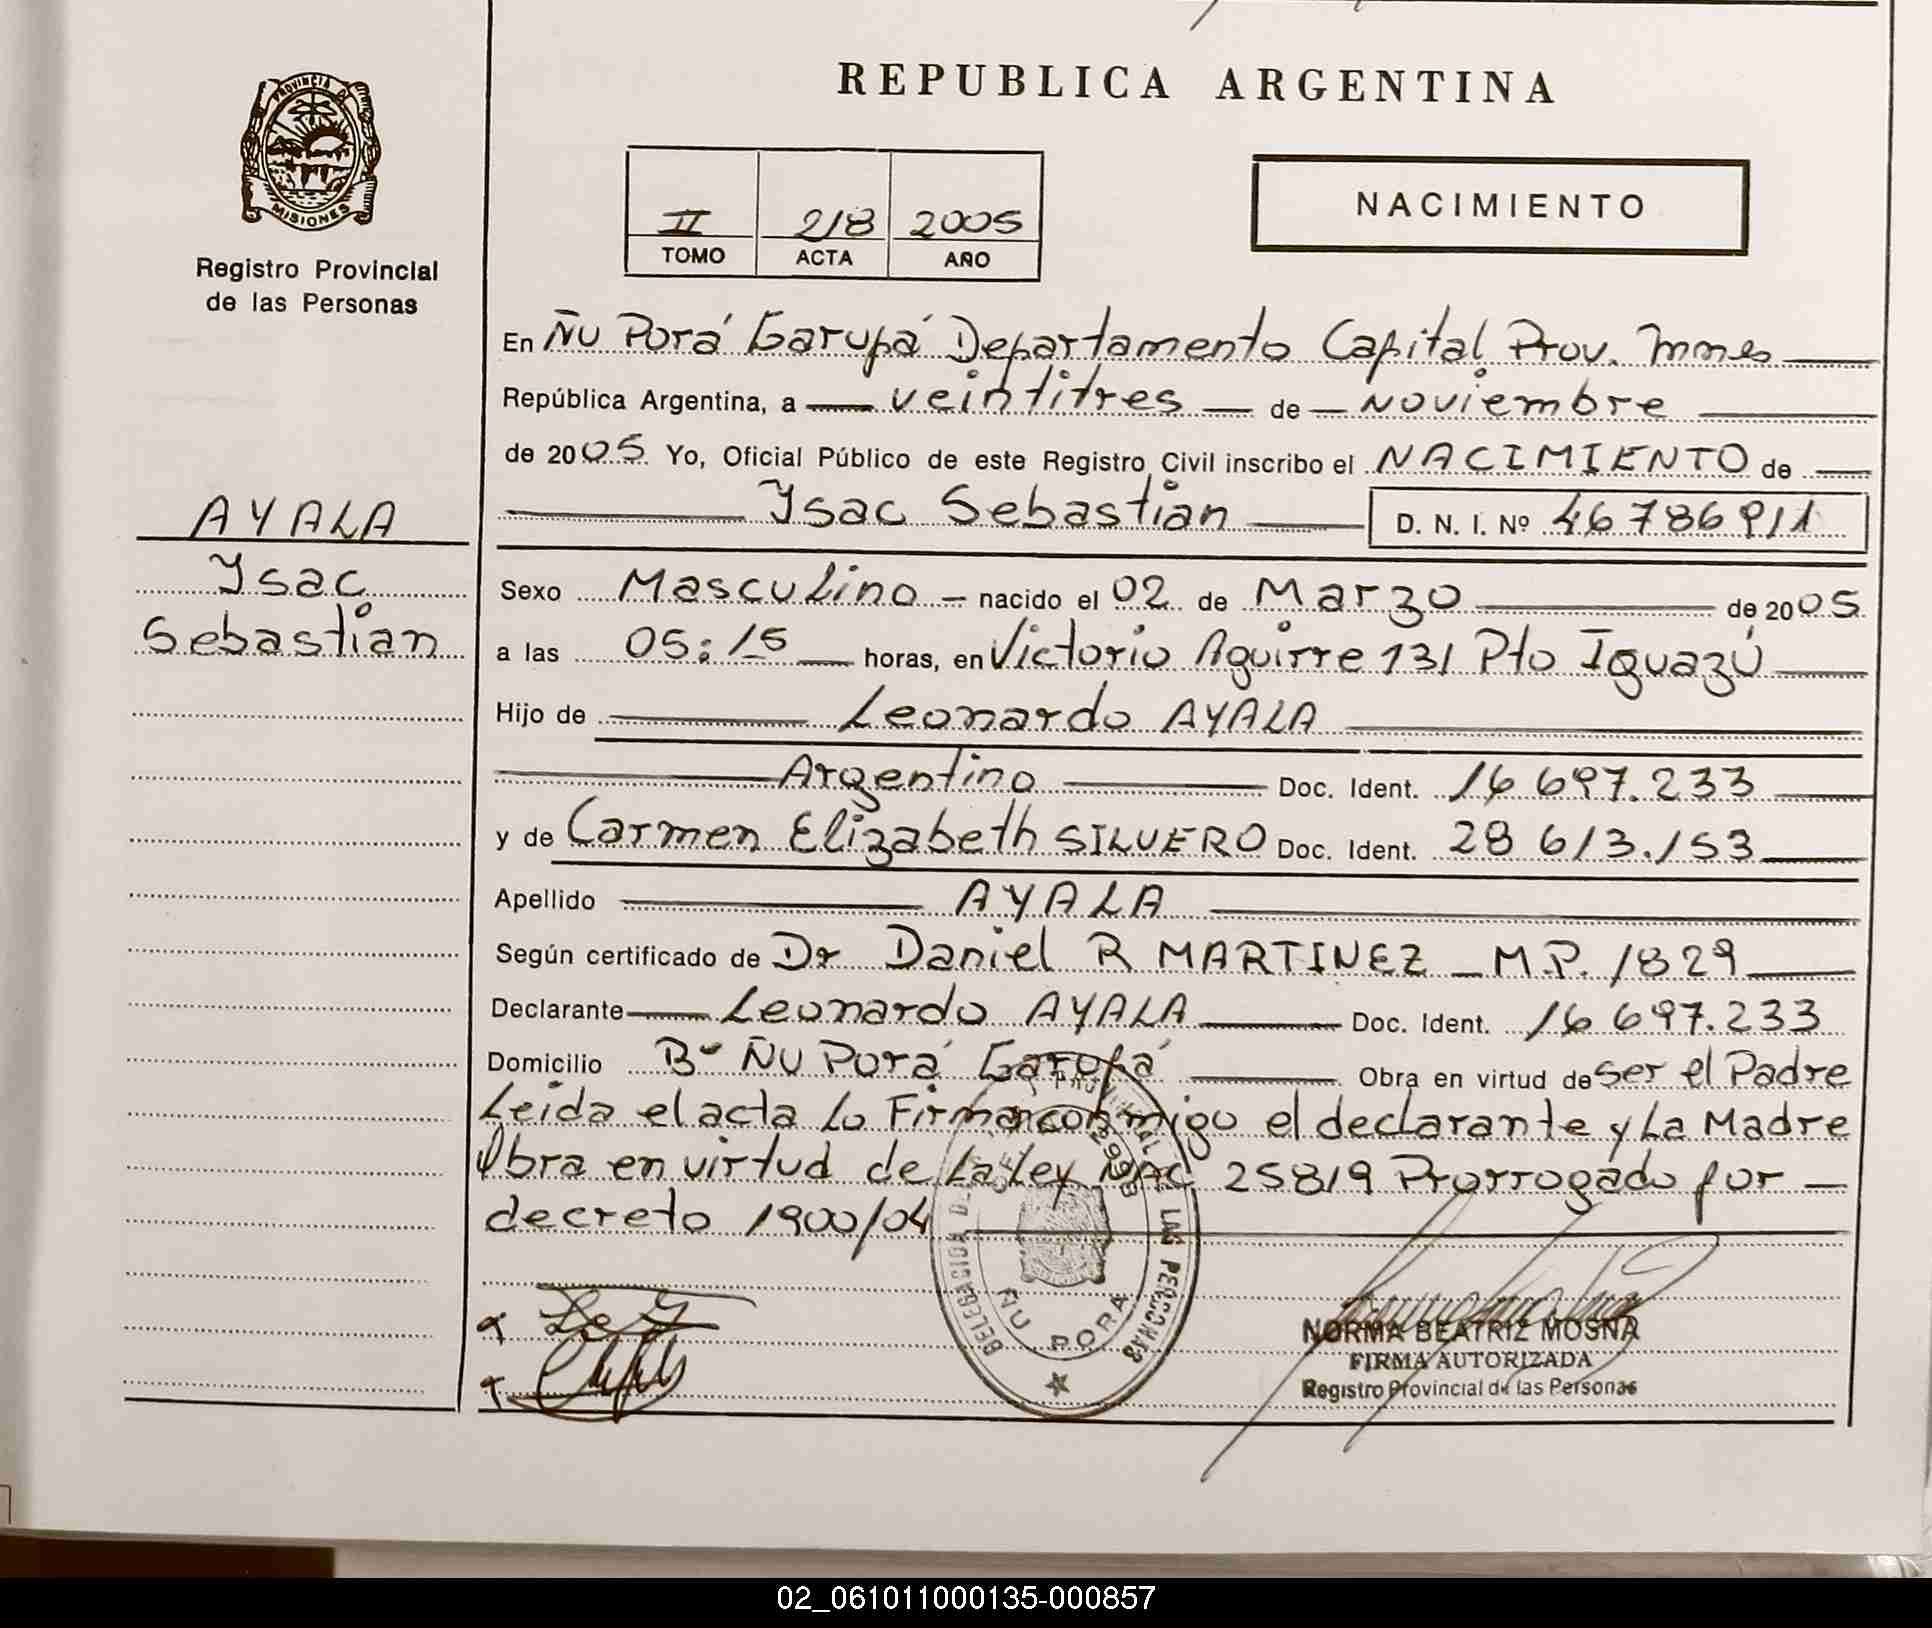 REPUBLICA ARGENTINA
PROVINCIA DE
MISIONES
Registro Provincial
de las Personas
II 218 2005
TOMO ACTA AÑO
NACIMIENTO
AYALA
Ysac
Sebastian
En Ñu Porá Garupá Departamento Capital Prov. Mnes
República Argentina, a veintitres de Noviembre
de 2005 Yo, Oficial Público de este Registro Civil inscribo el NACIMIENTO de
Ysac Sebastian D. N. I. Nº 46786911
Sexo Masculino nacido el 02 de Marzo de 2005
a las 05:15 horas, en Victorio Aguirre 131 Pto Iguazú
Hijo de Leonardo AYALA
Argentino Doc. Ident. 16 697.233
y de Carmen Elizabeth SILVERO Doc. Ident. 28 613.153
Apellido AYALA
Según certificado de Dr Daniel R MARTINEZ M.P. 1829
Declarante Leonardo AYALA Doc. Ident. 16 697.233
Domicilio Bº Ñu Porá Garupá Obra en virtud de ser el Padre
Leida el acta Lo Firman conmigo el declarante y La Madre
Obra en virtud de La Ley Nac 25819 Prorrogado por
decreto 1900/04
ÑU PORA
NORMA BEATRIZ MOSNA
FIRMA AUTORIZADA
Registro Provincial de las Personas
02_061011000135-000857